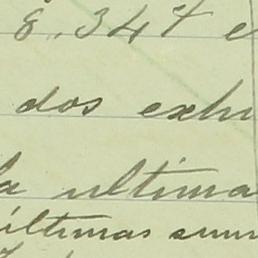 8.347 e
dos exhu
la ultima
últimas sum